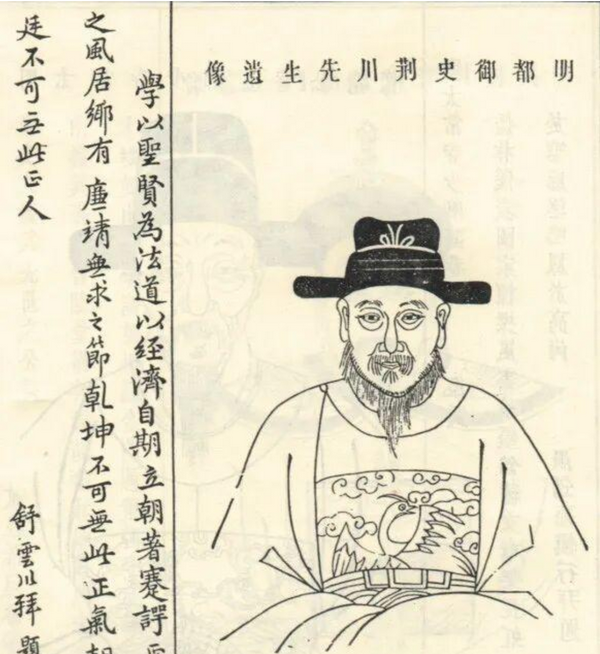 明都御史荆川先生遺像
學以聖賢為法道以經濟自期立朝著蹇諤
之風居鄉有廉靖無求之節乾坤不可無此正氣朝
廷不可无此正人
舒雲川拜題